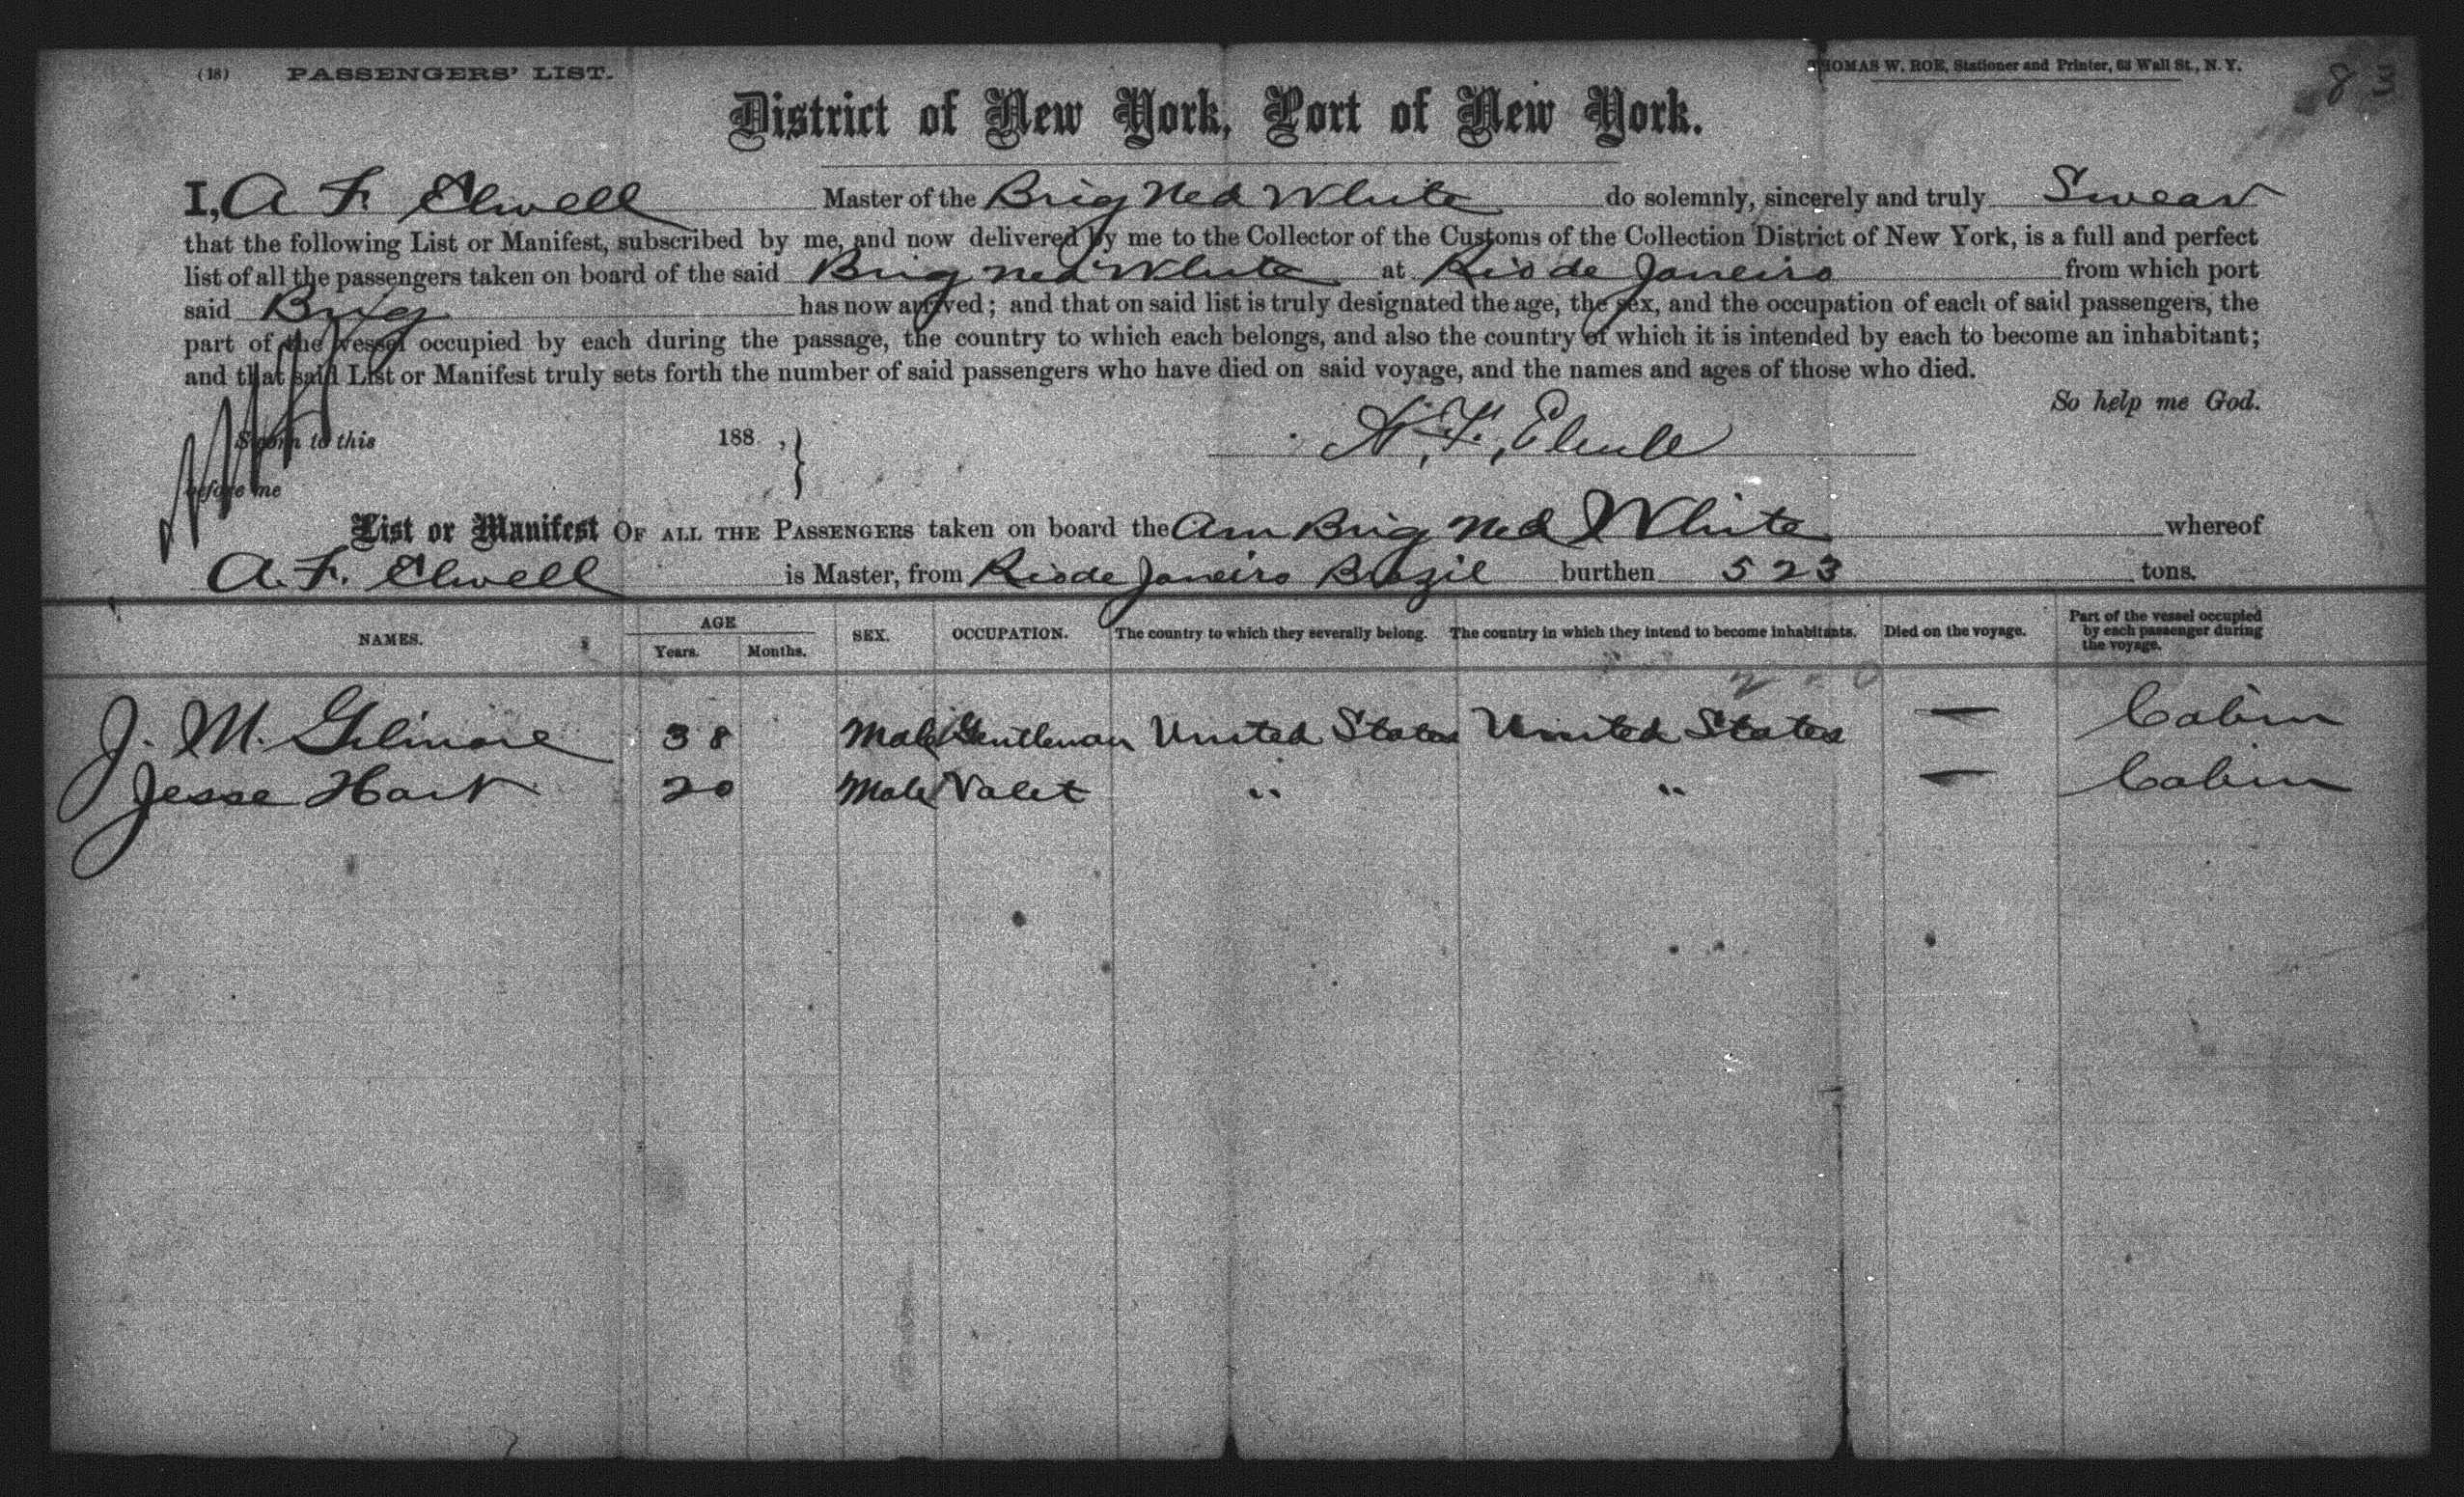 (18) PASSENGERS' LIST.
THOMAS W. ROE, Stationer and Printer, 63 Wall St., N. Y.
83
District of New York, Port of New York.
I, A F. Elwell Master of the Brig Ned White do solemnly, sincerely and truly Swear
that the following List or Manifest, subscribed by me, and now delivered by me to the Collector of the Customs of the Collection District of New York, is a full and perfect
list of all the passengers taken on board of the said Brig Ned White at Rio de Janeiro from which port
said Brig has now arrived; and that on said list is truly designated the age, the sex, and the occupation of each of said passengers, the
part of the vessel occupied by each during the passage, the country to which each belongs, and also the country of which it is intended by each to become an inhabitant;
and that said List or Manifest truly sets forth the number of said passengers who have died on said voyage, and the names and ages of those who died.
So help me God.
Sworn to this 188 ,
A. F. Elwell
before me
List or Manifest OF ALL THE PASSENGERS taken on board the Am Brig Ned White whereof
A. F. Elwell is Master, from Rio de Janeiro Brazil burthen 523 tons.
NAMES. AGE Years. Months. SEX. OCCUPATION. The country to which they severally belong. The country in which they intend to become inhabitants. Died on the voyage. Part of the vessel occupied by each passenger during the voyage.
J. M. Gilmore 38 Male Gentleman United States United States — Cabin
Jesse Hart 20 Male Valet " " — Cabin